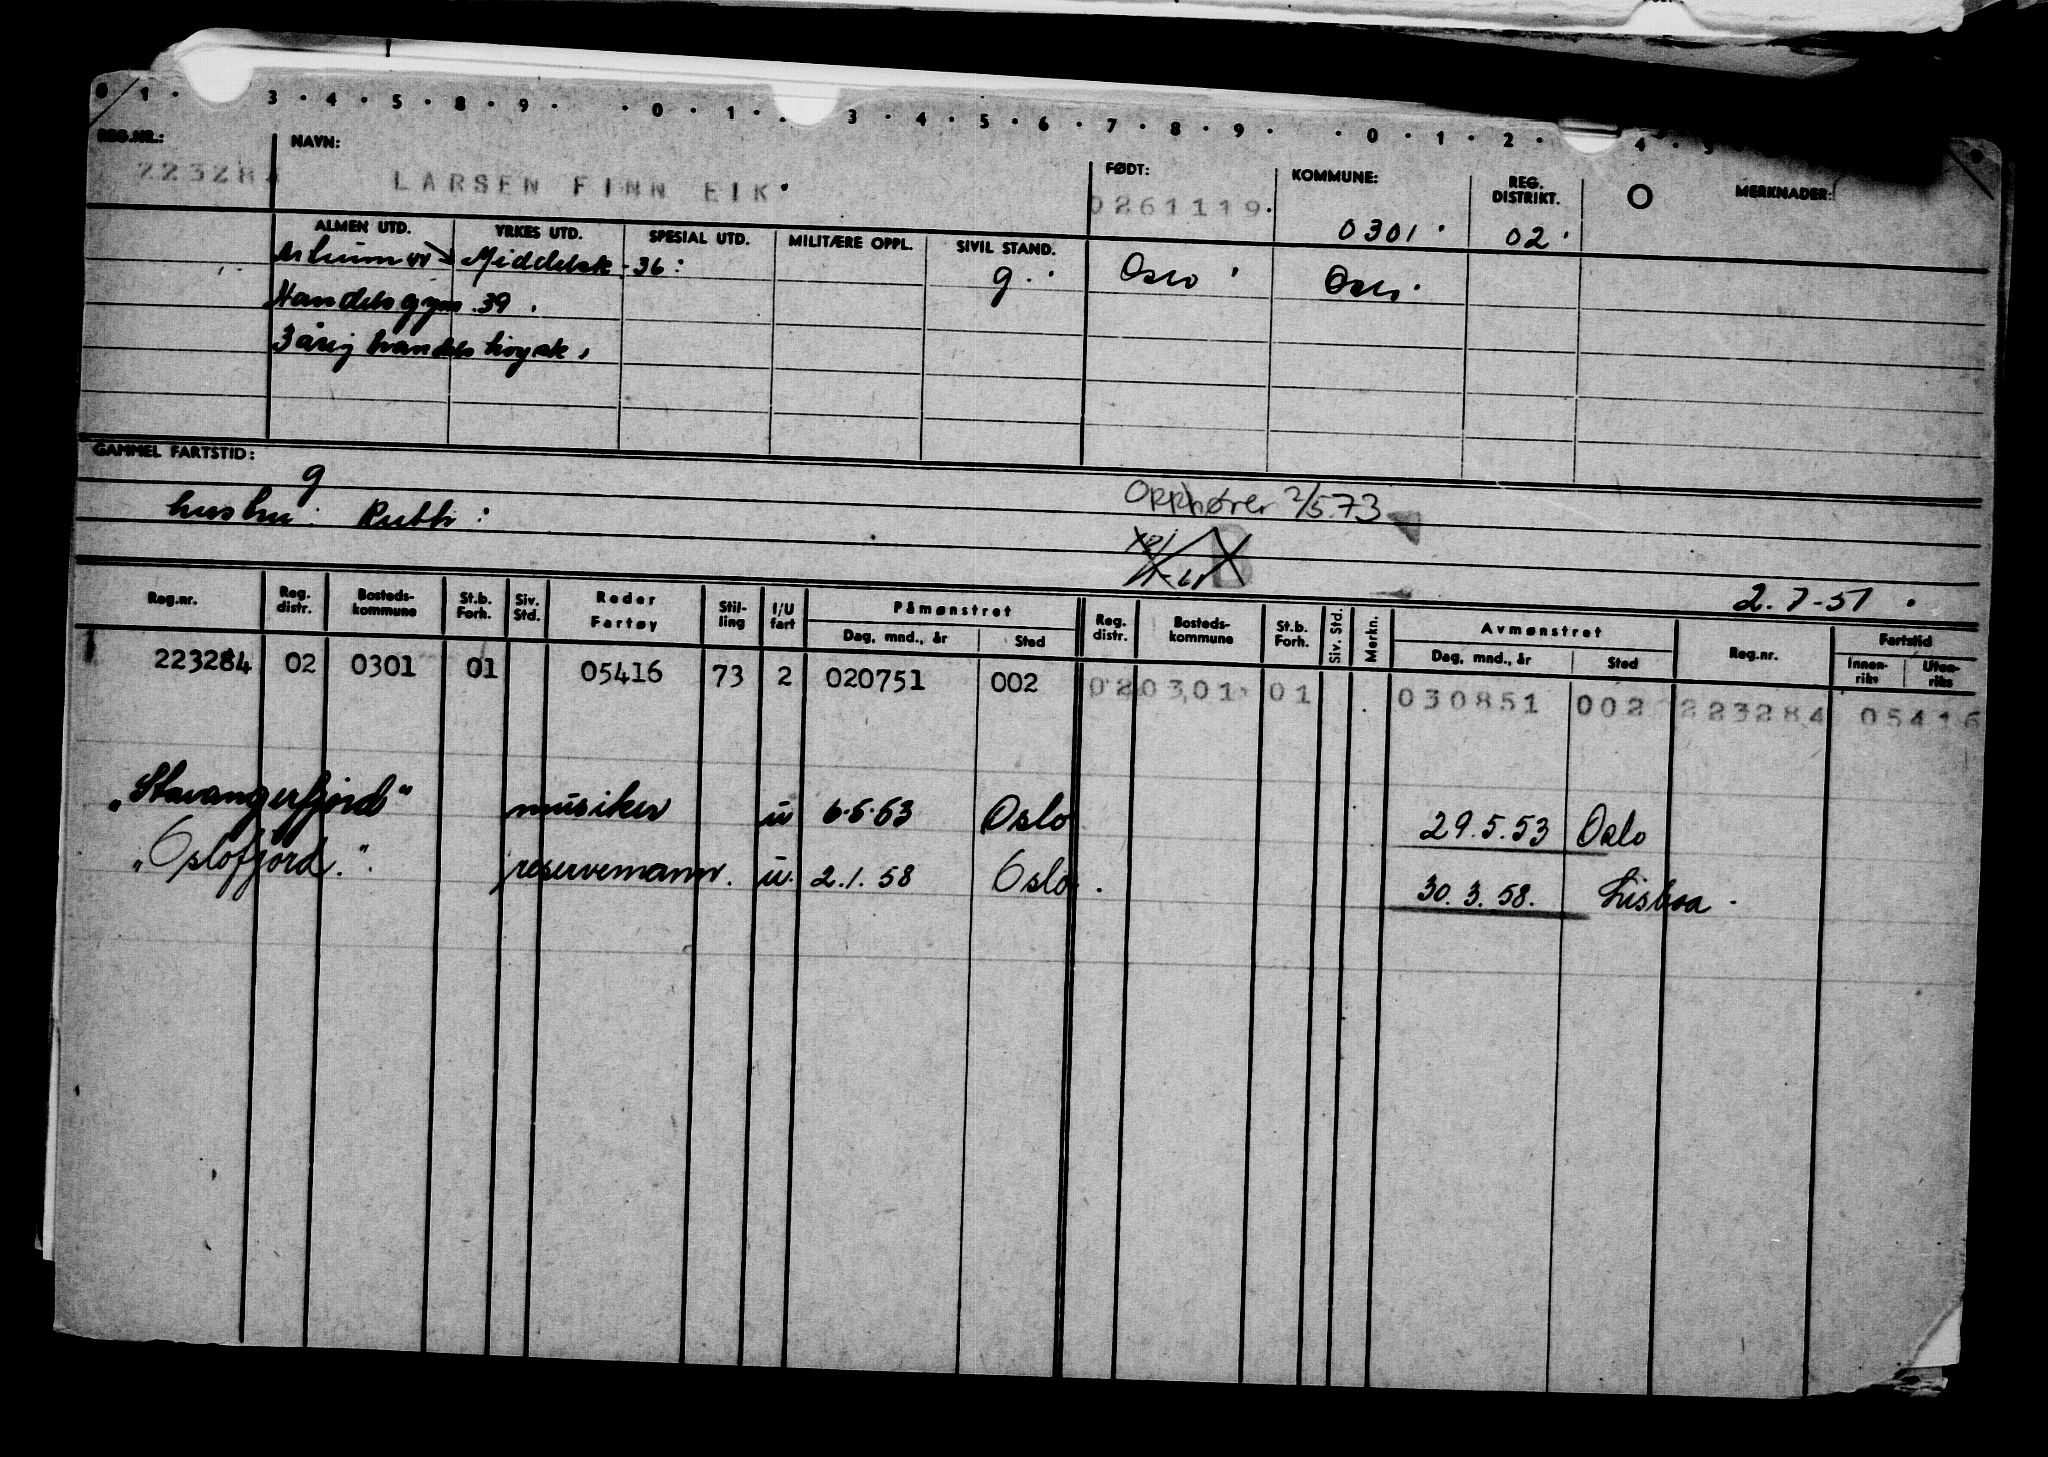 0 1 · 3 · 4 · 5 · 8 · 9 · · 0 · 1 · · 3 · 4 · 5 · 6 · 7 · 8 · 9 · · 0 · 1 · 2 · 4 · 5
REG.NR.: NAVN: FØDT: KOMMUNE: REG. DISTRIKT. O MERKNADER:
223284 LARSEN FINN EIK 0261119 0301 02
ALMEN UTD. YRKES UTD. SPESIAL UTD. MILITÆRE OPPL. SIVIL STAND.
Middelsk -36: g. Oslo Oslo
Handelsgym .39.
3 årig handels høysk,
GAMMEL FARTSTID:
g
hustru: Ruth: Opphører 2/5.73
2.7-51
Reg.nr. Reg. distr. Bosteds-kommune St.b. Forh. Siv. Std. Reder Fartøy Stil-ling I/U fart Påmønstret Reg. distr. Bosteds-kommune St.b. Forh. Siv. Std. Merkn. Avmønstret Reg.nr. Fartstid
Dag, mnd., år Sted Dag, mnd., år Sted Innen-riks Uten-riks
223284 02 0301 01 05416 73 2 020751 002 02 0301 01 030851 002 223284 05416
"Stavangerfjord" musiker u 6.5.53 Oslo 29.5.53 Oslo
"Oslofjord." reservemann. u. 2.1.58 Oslo. 30.3.58. Lisboa.